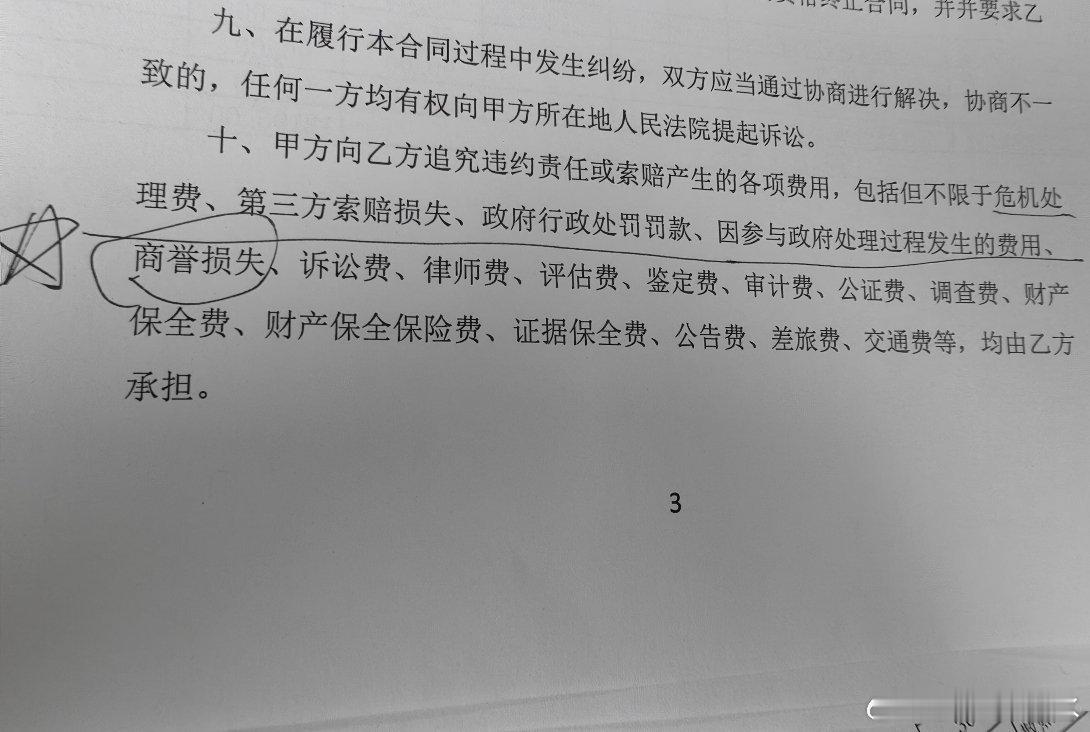 终止合同，并并要求乙
九、在履行本合同过程中发生纠纷，双方应当通过协商进行解决，协商不一
致的，任何一方均有权向甲方所在地人民法院提起诉讼。
十、甲方向乙方追究违约责任或索赔产生的各项费用，包括但不限于危机处
理费、第三方索赔损失、政府行政处罚罚款、因参与政府处理过程发生的费用、
商誉损失、诉讼费、律师费、评估费、鉴定费、审计费、公证费、调查费、财产
保全费、财产保全保险费、证据保全费、公告费、差旅费、交通费等，均由乙方
承担。
3